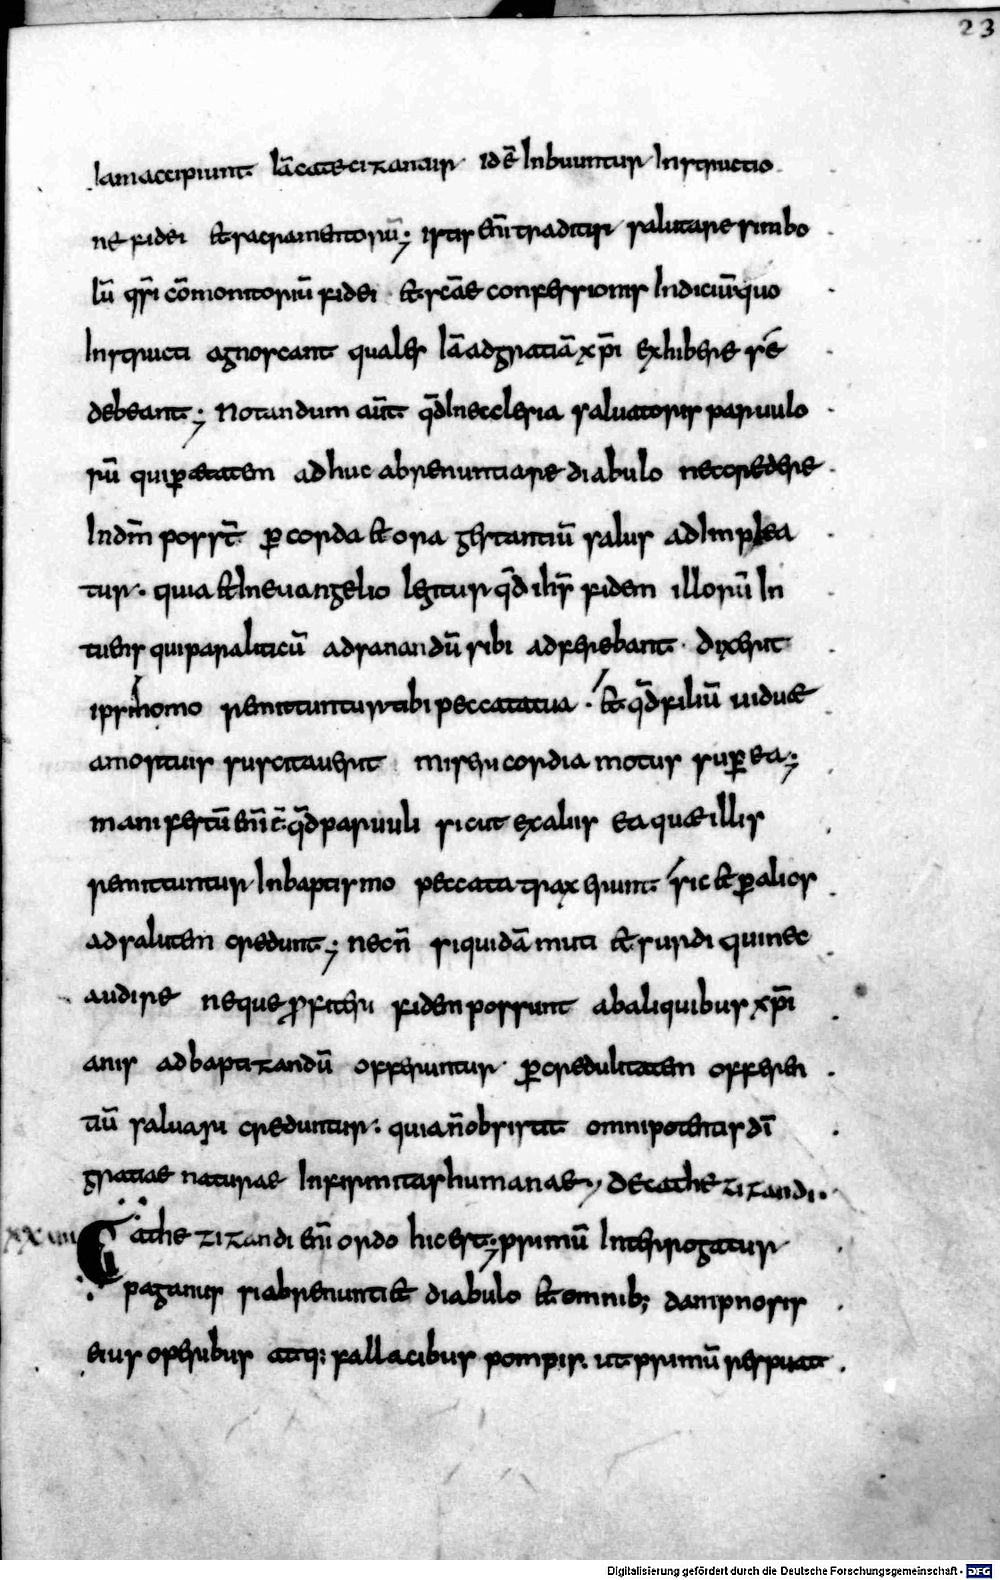 23
Iam accipiunt Iā catecizantur idē Inbuuntur Instructio
ne fidei & sacramentorū; istis eni traditur salutare simbo
lū qsi cōmonitoriū fidei · & scāe confessionis Indiciū quo
Instructi agnoscant quales Iā ad gratiā xpi exhibere sé
debeant; Notandum aūt qđ In ecclesia saluatoris paruulo
rū qui ꝑ etatem adhuc abrenuntiare diabulo nec credere
In dm̄ poss̄t ꝑ corda & ora gestantiū salus adimplea
tur · quia & In euangelio legitur qđ ihs̄ fidem illorū In
tuens qui paraliticū ad sanandū sibi adferebant · dixerit
ipsi homo remittuntur tibi peccata tua · & qđ filiū uiduę
a mortuis suscitauerit misericordia motus suꝑ ea;
manifestū eni ē qđ paruuli sicut ex alus ea quę illis
remittuntur In baptismo peccata traxerunt sic & ꝑ alios
ad salutem credunt; necn̄ si quidā muti & surdi qui nec
audire neque ꝓfiteri fidem possunt ab aliquibus xpi
anis ad baptizandū offeruntur ꝑ credulitatem offeren
tiū saluari creduntur · quia n̄ obsistit omnipotentis dī
gratiae naturae Infirmitas humanae, De cathezizandi ·
XXIIII Cathezizandi eni ordo hic est; primū Interogatur
paganus si abrenunti& diabulo & omnib; dampnosis
eius operibus atq; fallacibus pompis. ut primū respuat
Digitalisierung gefördert durch die Deutsche Forschungsgemeinschaft - DFG